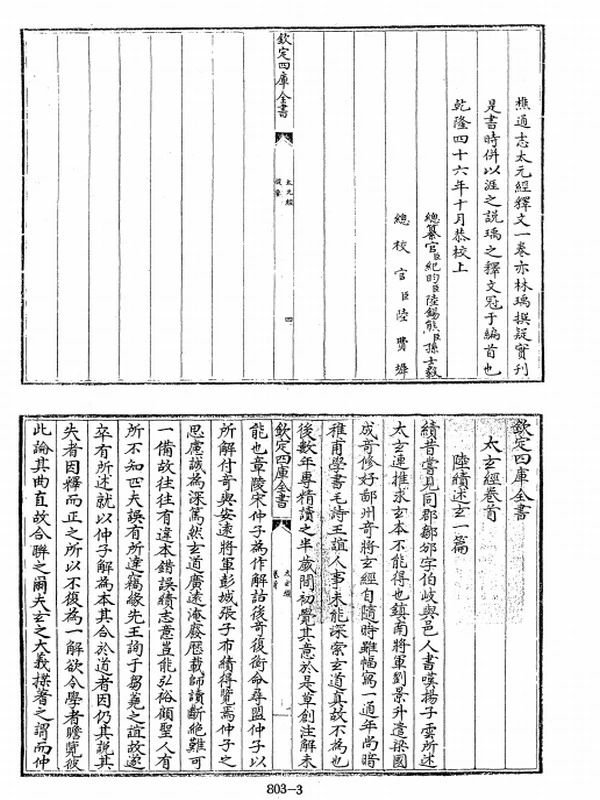 樵通志太元經釋文一卷亦林瑀撰疑實刋
是書時併以涯之説瑀之釋文冠于編首也
乾隆四十六年十月恭校上
總纂官臣紀昀臣陸錫熊臣孫士毅
總校官臣陸費墀
欽定四庫全書
太元經
提要
四
欽定四庫全書
太玄經卷首
陸績述玄一篇
績昔嘗見同郡鄒邠字伯岐與邑人書嘆揚子雲所述
太玄連推求玄本不能得也鎮南將軍劉景升遣梁國
成奇修好鄙州奇將玄經自隨時雖幅寫一通年尚暗
稚甫學書毛詩王誼人事未能深索玄道真故不為也
後數年專精讀之半歲間初覺其意於是草創注解未
欽定四庫全書
太玄經
卷首
一
能也章陵宋仲子為作解詁後奇復銜命尋盟仲子以
所解付奇與安遠將軍彭城張子布績得覽焉仲子之
思慮誠為深篤然玄道廣遠淹廢歴載師讀斷絶難可
一備故往往有違本錯誤績志意豈能弘裕顧聖人有
所不知匹夫誤有所達竊緣先王詢于芻蕘之誼故遂
卒有所述就以仲子解為本其合於道者因仍其説其
失者因釋而正之所以不復為一解欲令學者瞻覽彼
此論其曲直故合聯之爾夫玄之大義揲蓍之謂而仲
803-3